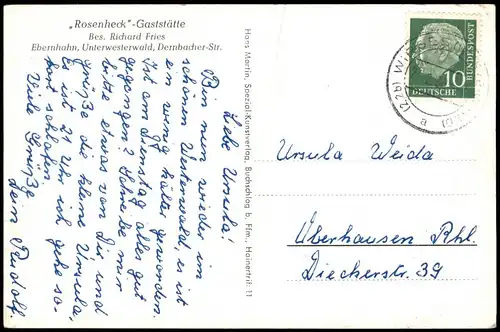 „Rosenheck"-Gaststätte
Bes. Richard Fries
Ebernhahn, Unterwesterwald, Dernbacher-Str.
Liebe Ursula!
Bin nun wieder im
schönen Westerwald, es ist
ein wenig kälter geworden.
Ist am Samstag alles gut
gegangen? Schreibe mir
bitte etwas von Dir und
grüße die kleine Ursula,
Es ist 21 Uhr ich gehe so-
fort schlafen.
Viele Grüße
Dein Rudolf.
Hans Martin, Spezial-Kunstverlag, Buchschlag b. Ffm., Hainertrift 11
DEUTSCHE
BUNDESPOST
10
(22b)
a
Ursula Weida
Oberhausen Rhl.
Diecherstr. 39